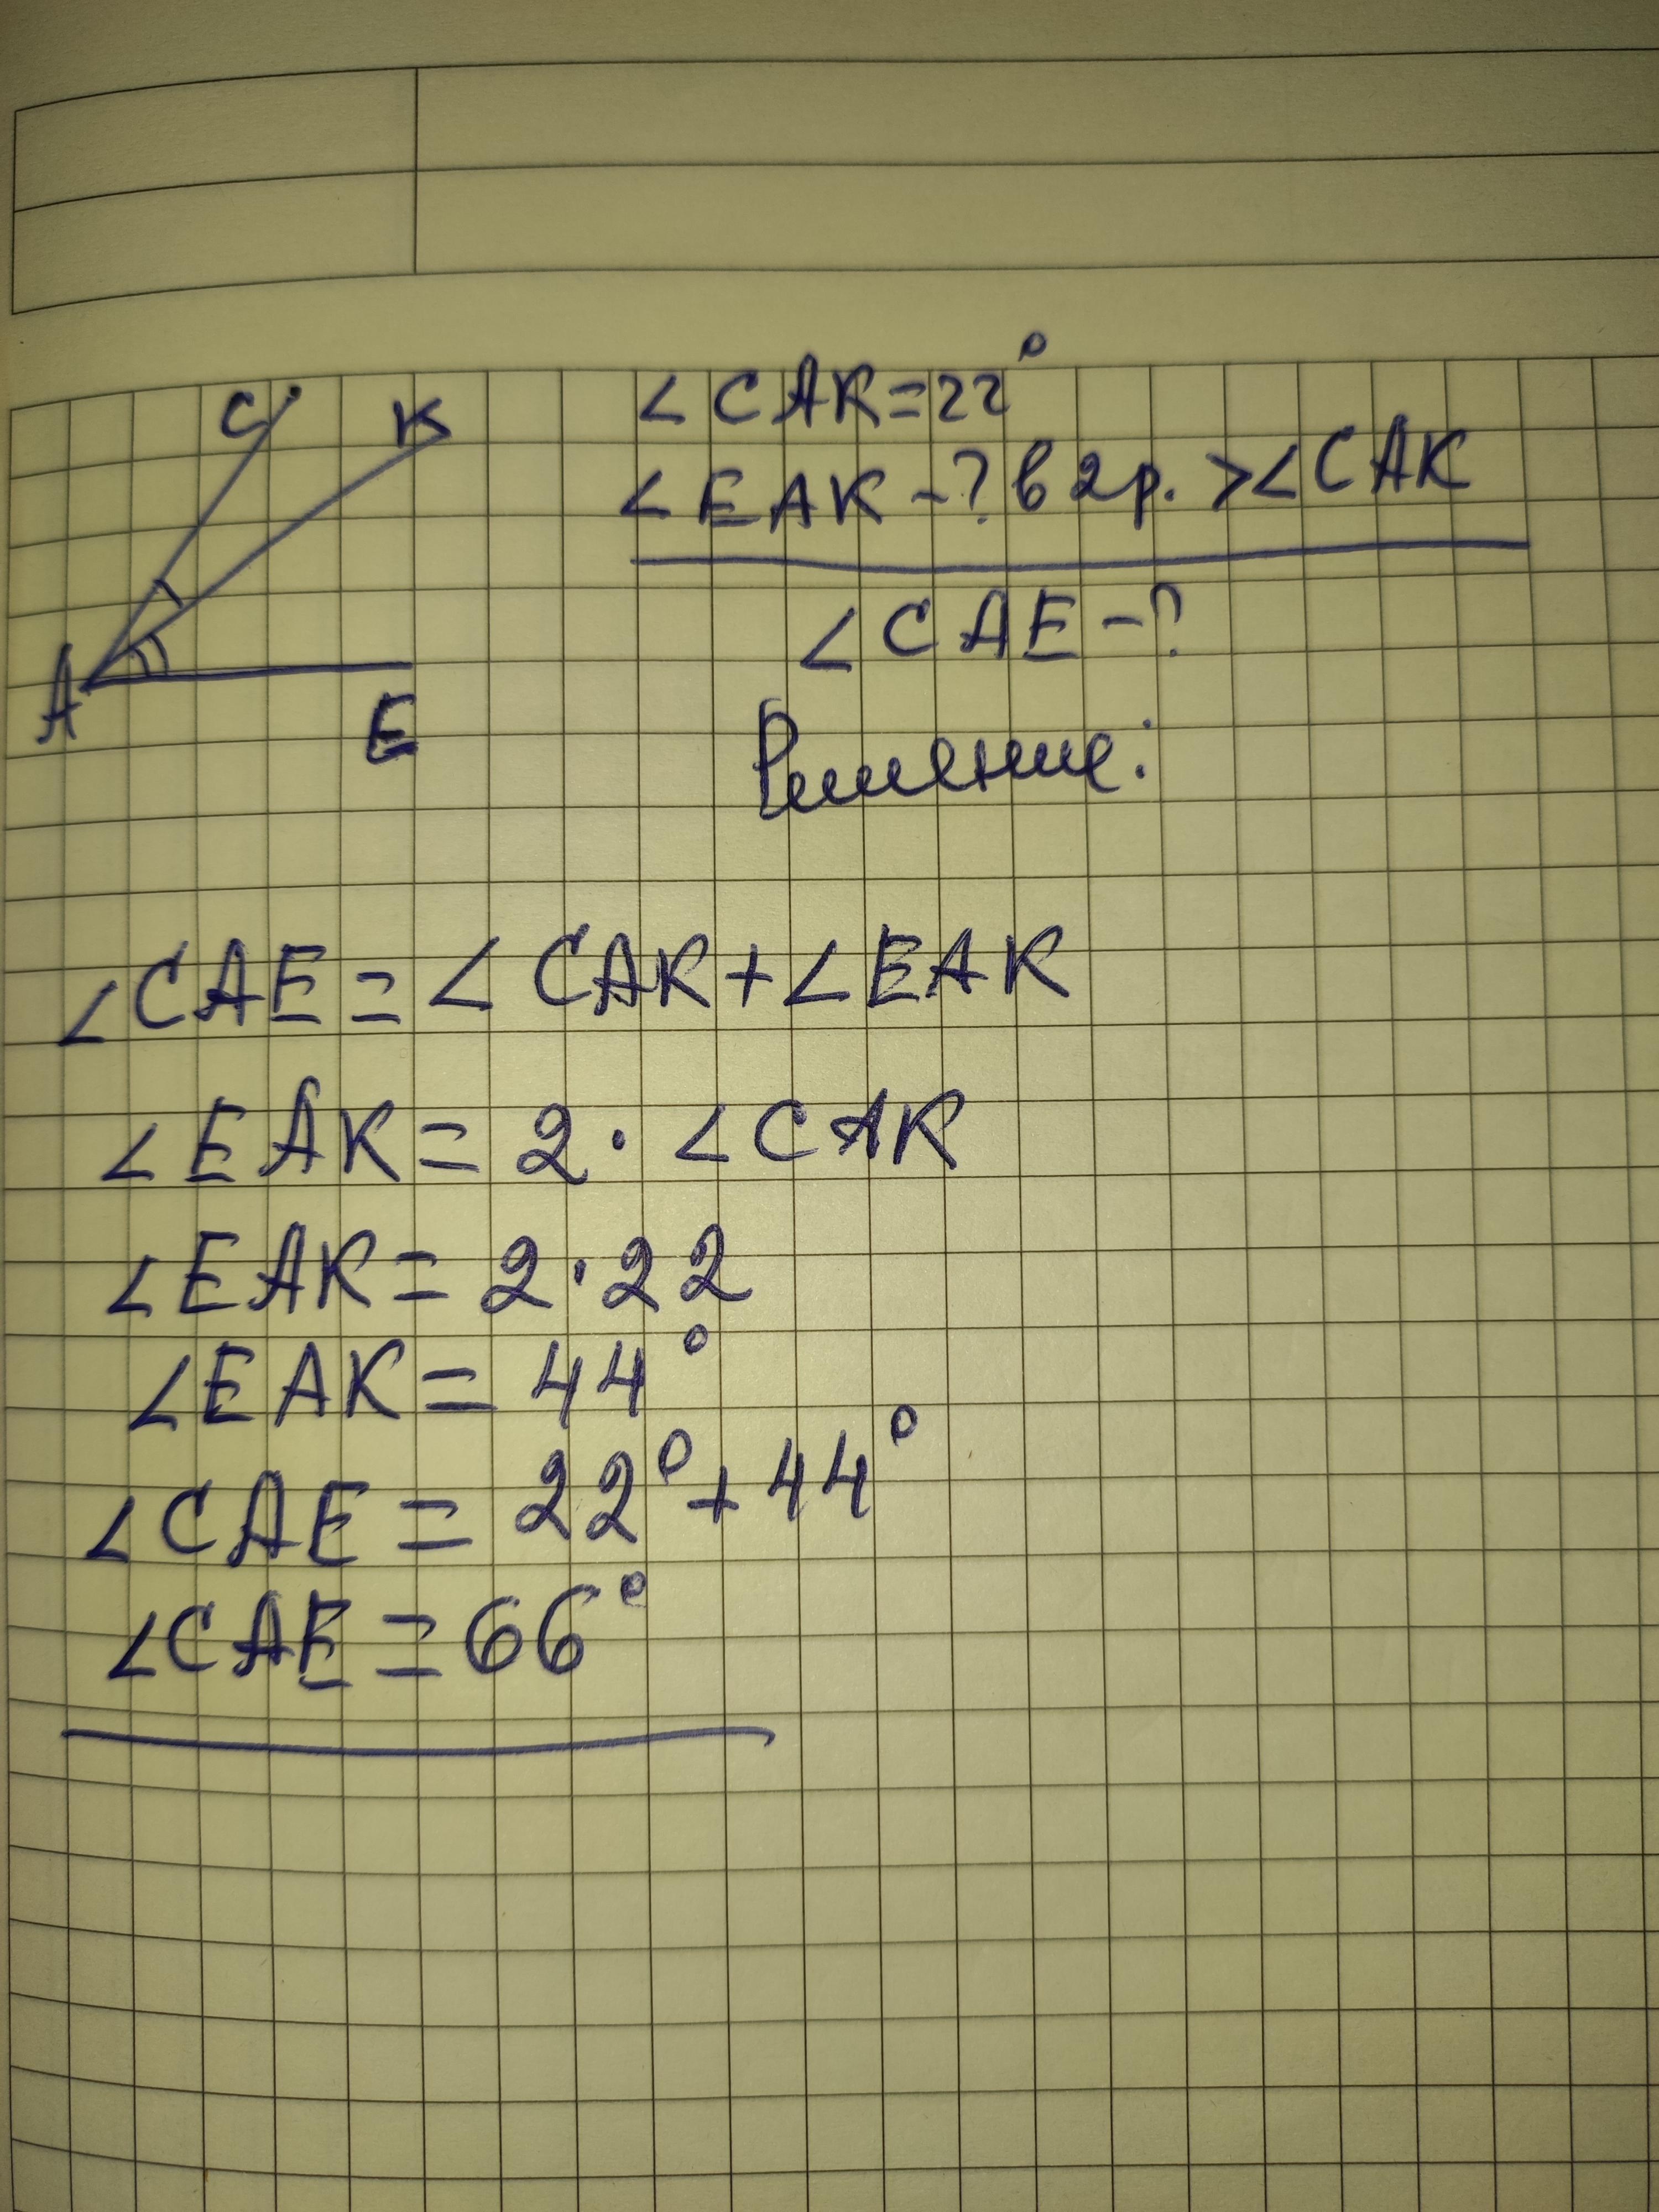 C K
A
E
∠CAK=22°
∠EAK-? в 2р. >∠CAK
∠CAE-?
Решение:
∠CAE=∠CAK+∠EAK
∠EAK=2·∠CAK
∠EAK=2·22
∠EAK=44°
∠CAE=22°+44°
∠CAE=66°